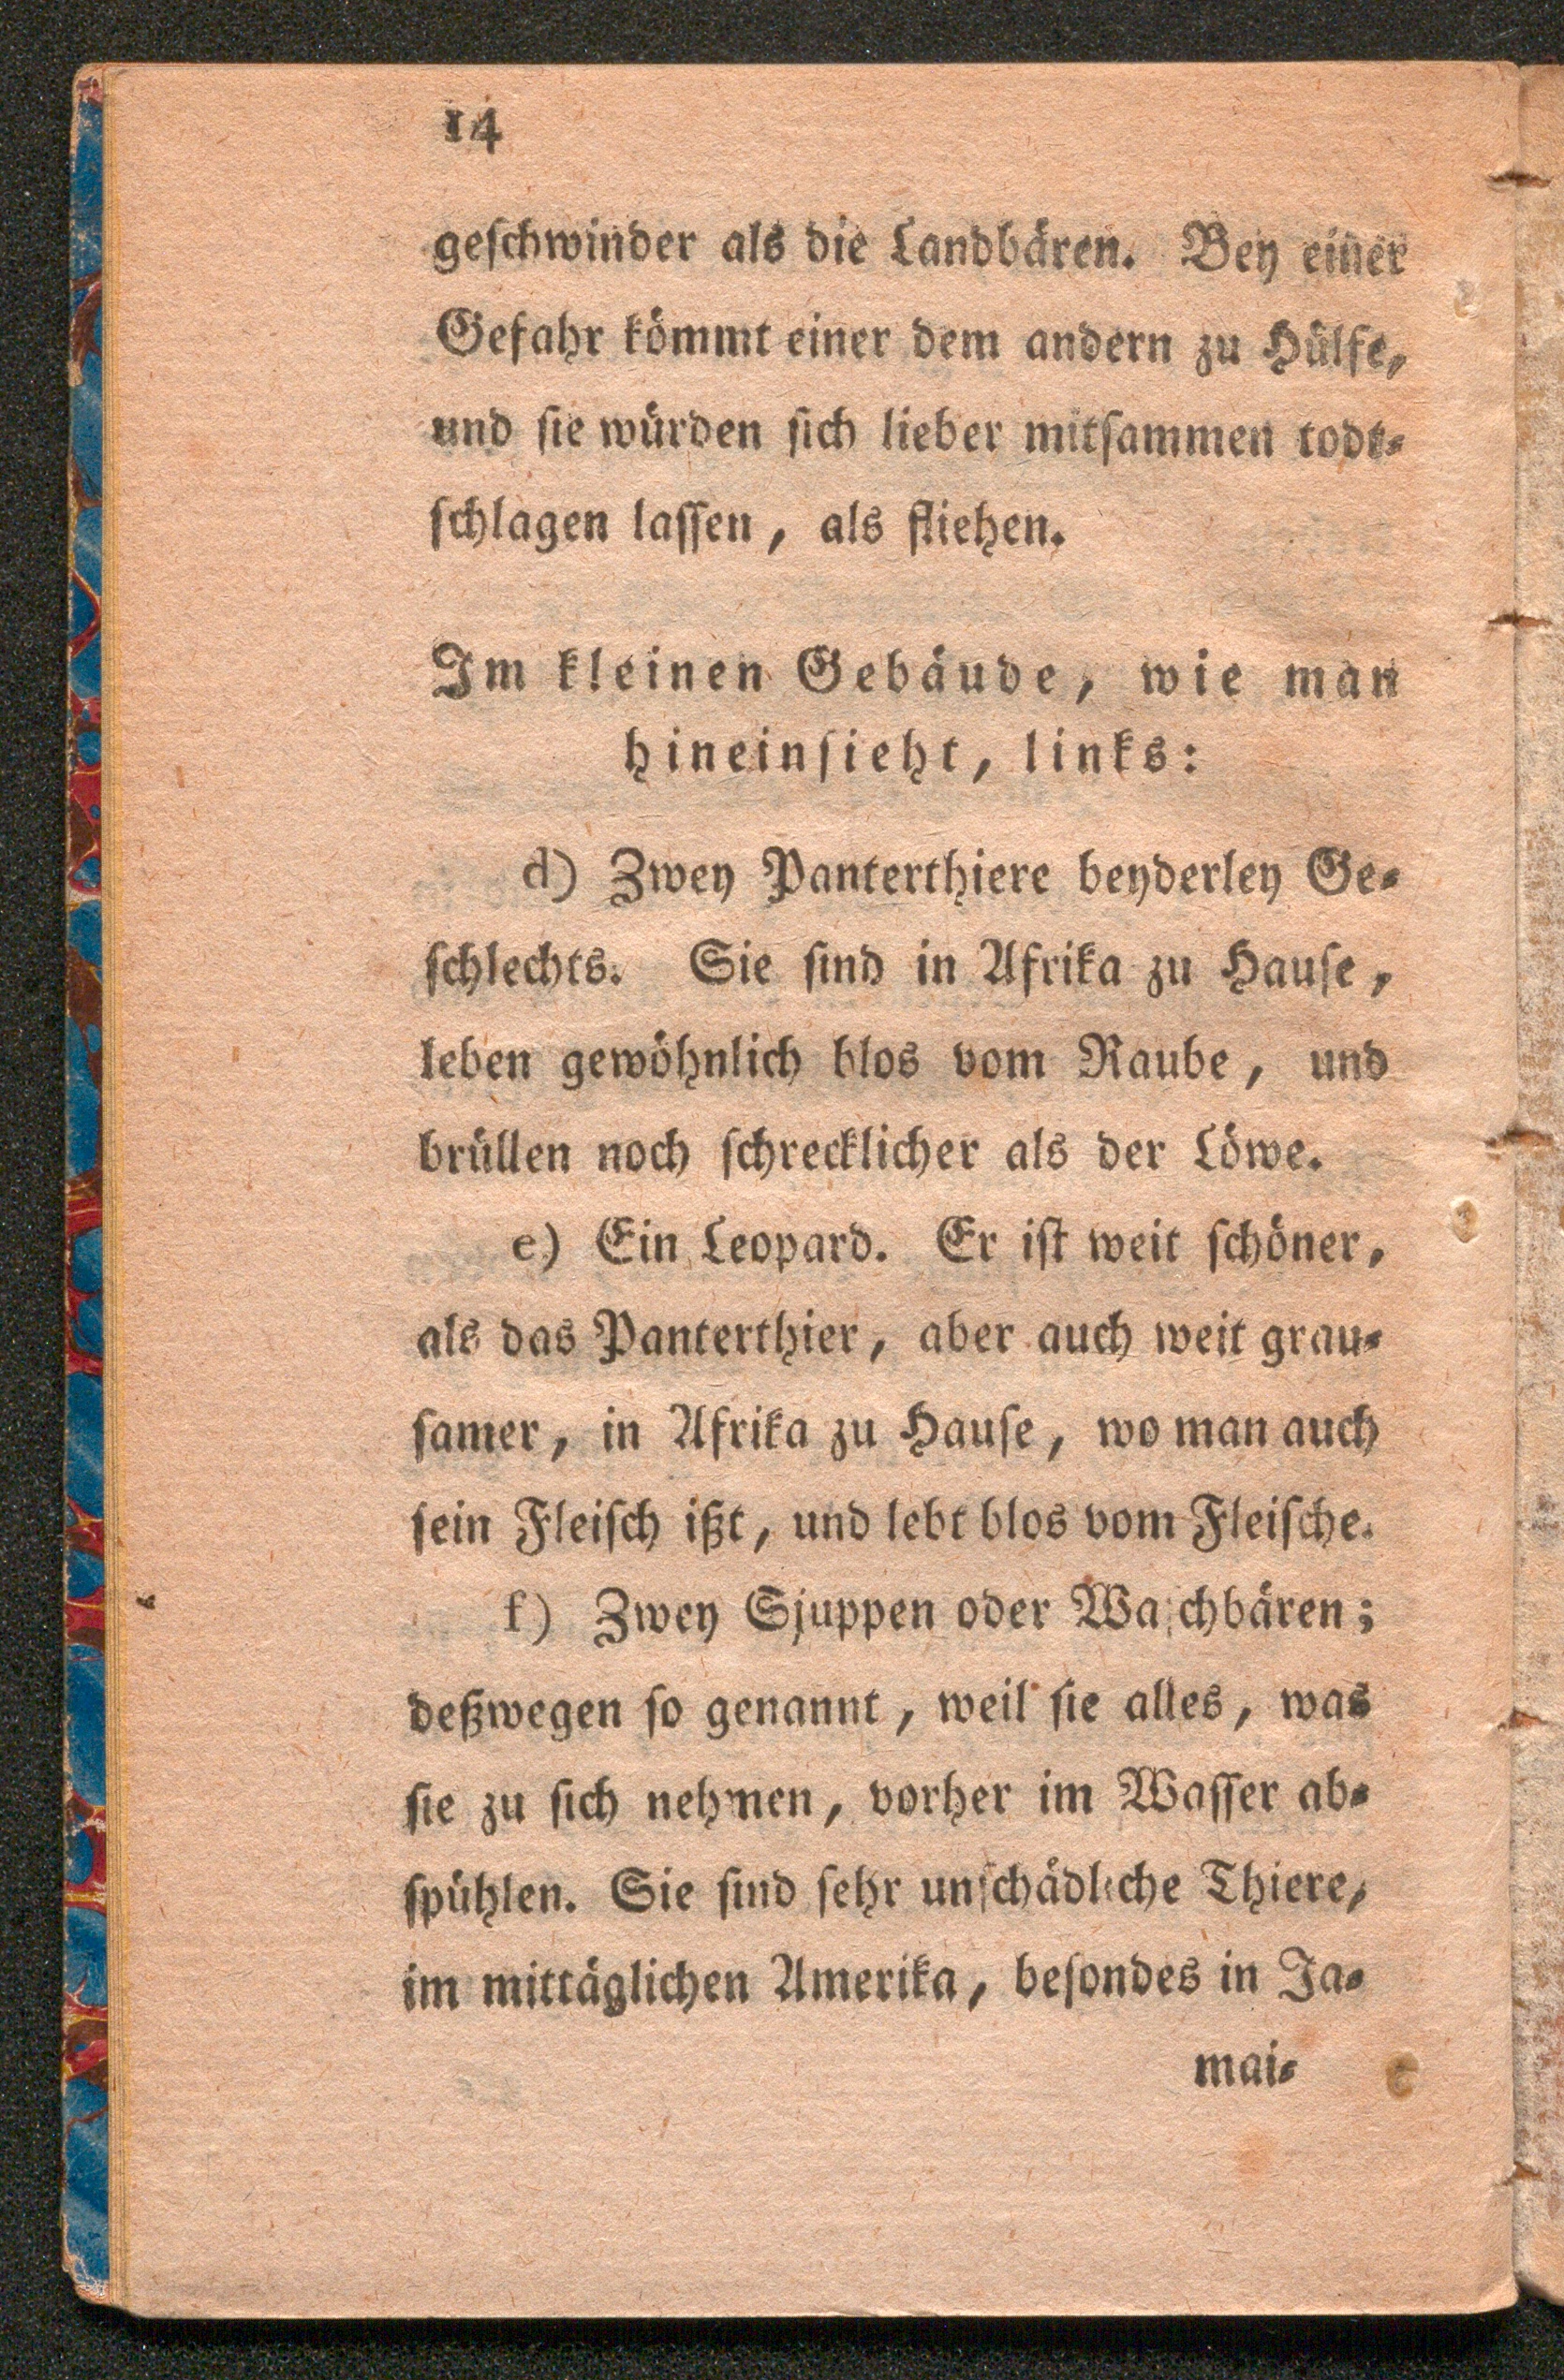 14
geſchwinder als die Landbären. Bey einer
Gefahr kömmt einer dem andern zu Hülfe,
und ſie würden ſich lieber mitſammen todt⸗
ſchlagen laſſen, als fliehen.
Im kleinen Gebäude, wie man
hineinſieht, links:
d) Zwey Panterthiere beyderley Ge⸗
ſchlechts. Sie ſind in Afrika zu Hauſe,
leben gewöhnlich blos vom Raube, und
brüllen noch ſchrecklicher als der Löwe.
e) Ein Leopard. Er iſt weit ſchöner,
als das Panterthier, aber auch weit grau⸗
ſamer, in Afrika zu Hauſe, wo man auch
ſein Fleiſch ißt, und lebt blos vom Fleiſche.
f) Zwey Sjuppen oder Waſchbären;
deßwegen ſo genannt, weil ſie alles, was
ſie zu ſich nehmen, vorher im Waſſer ab⸗
ſpühlen. Sie ſind ſehr unſchädliche Thiere,
im mittäglichen Amerika, beſondes in Ja⸗
mai⸗